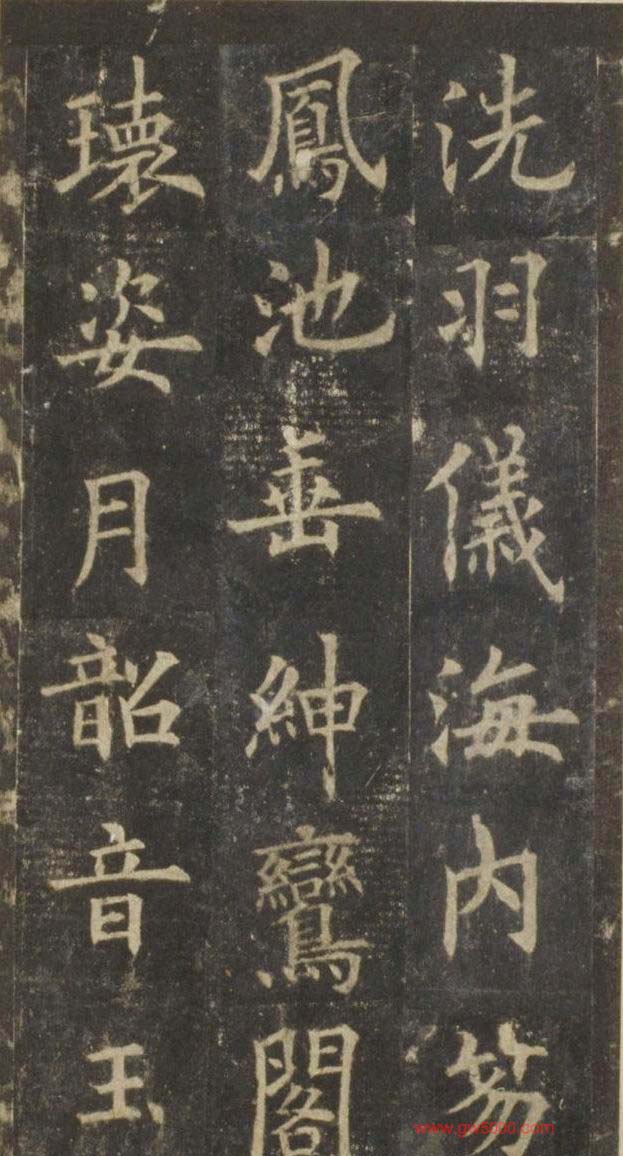 洗羽儀海内笏
鳳池垂紳鸞閣
瓌姿月韶音玉
www.gw8000.com